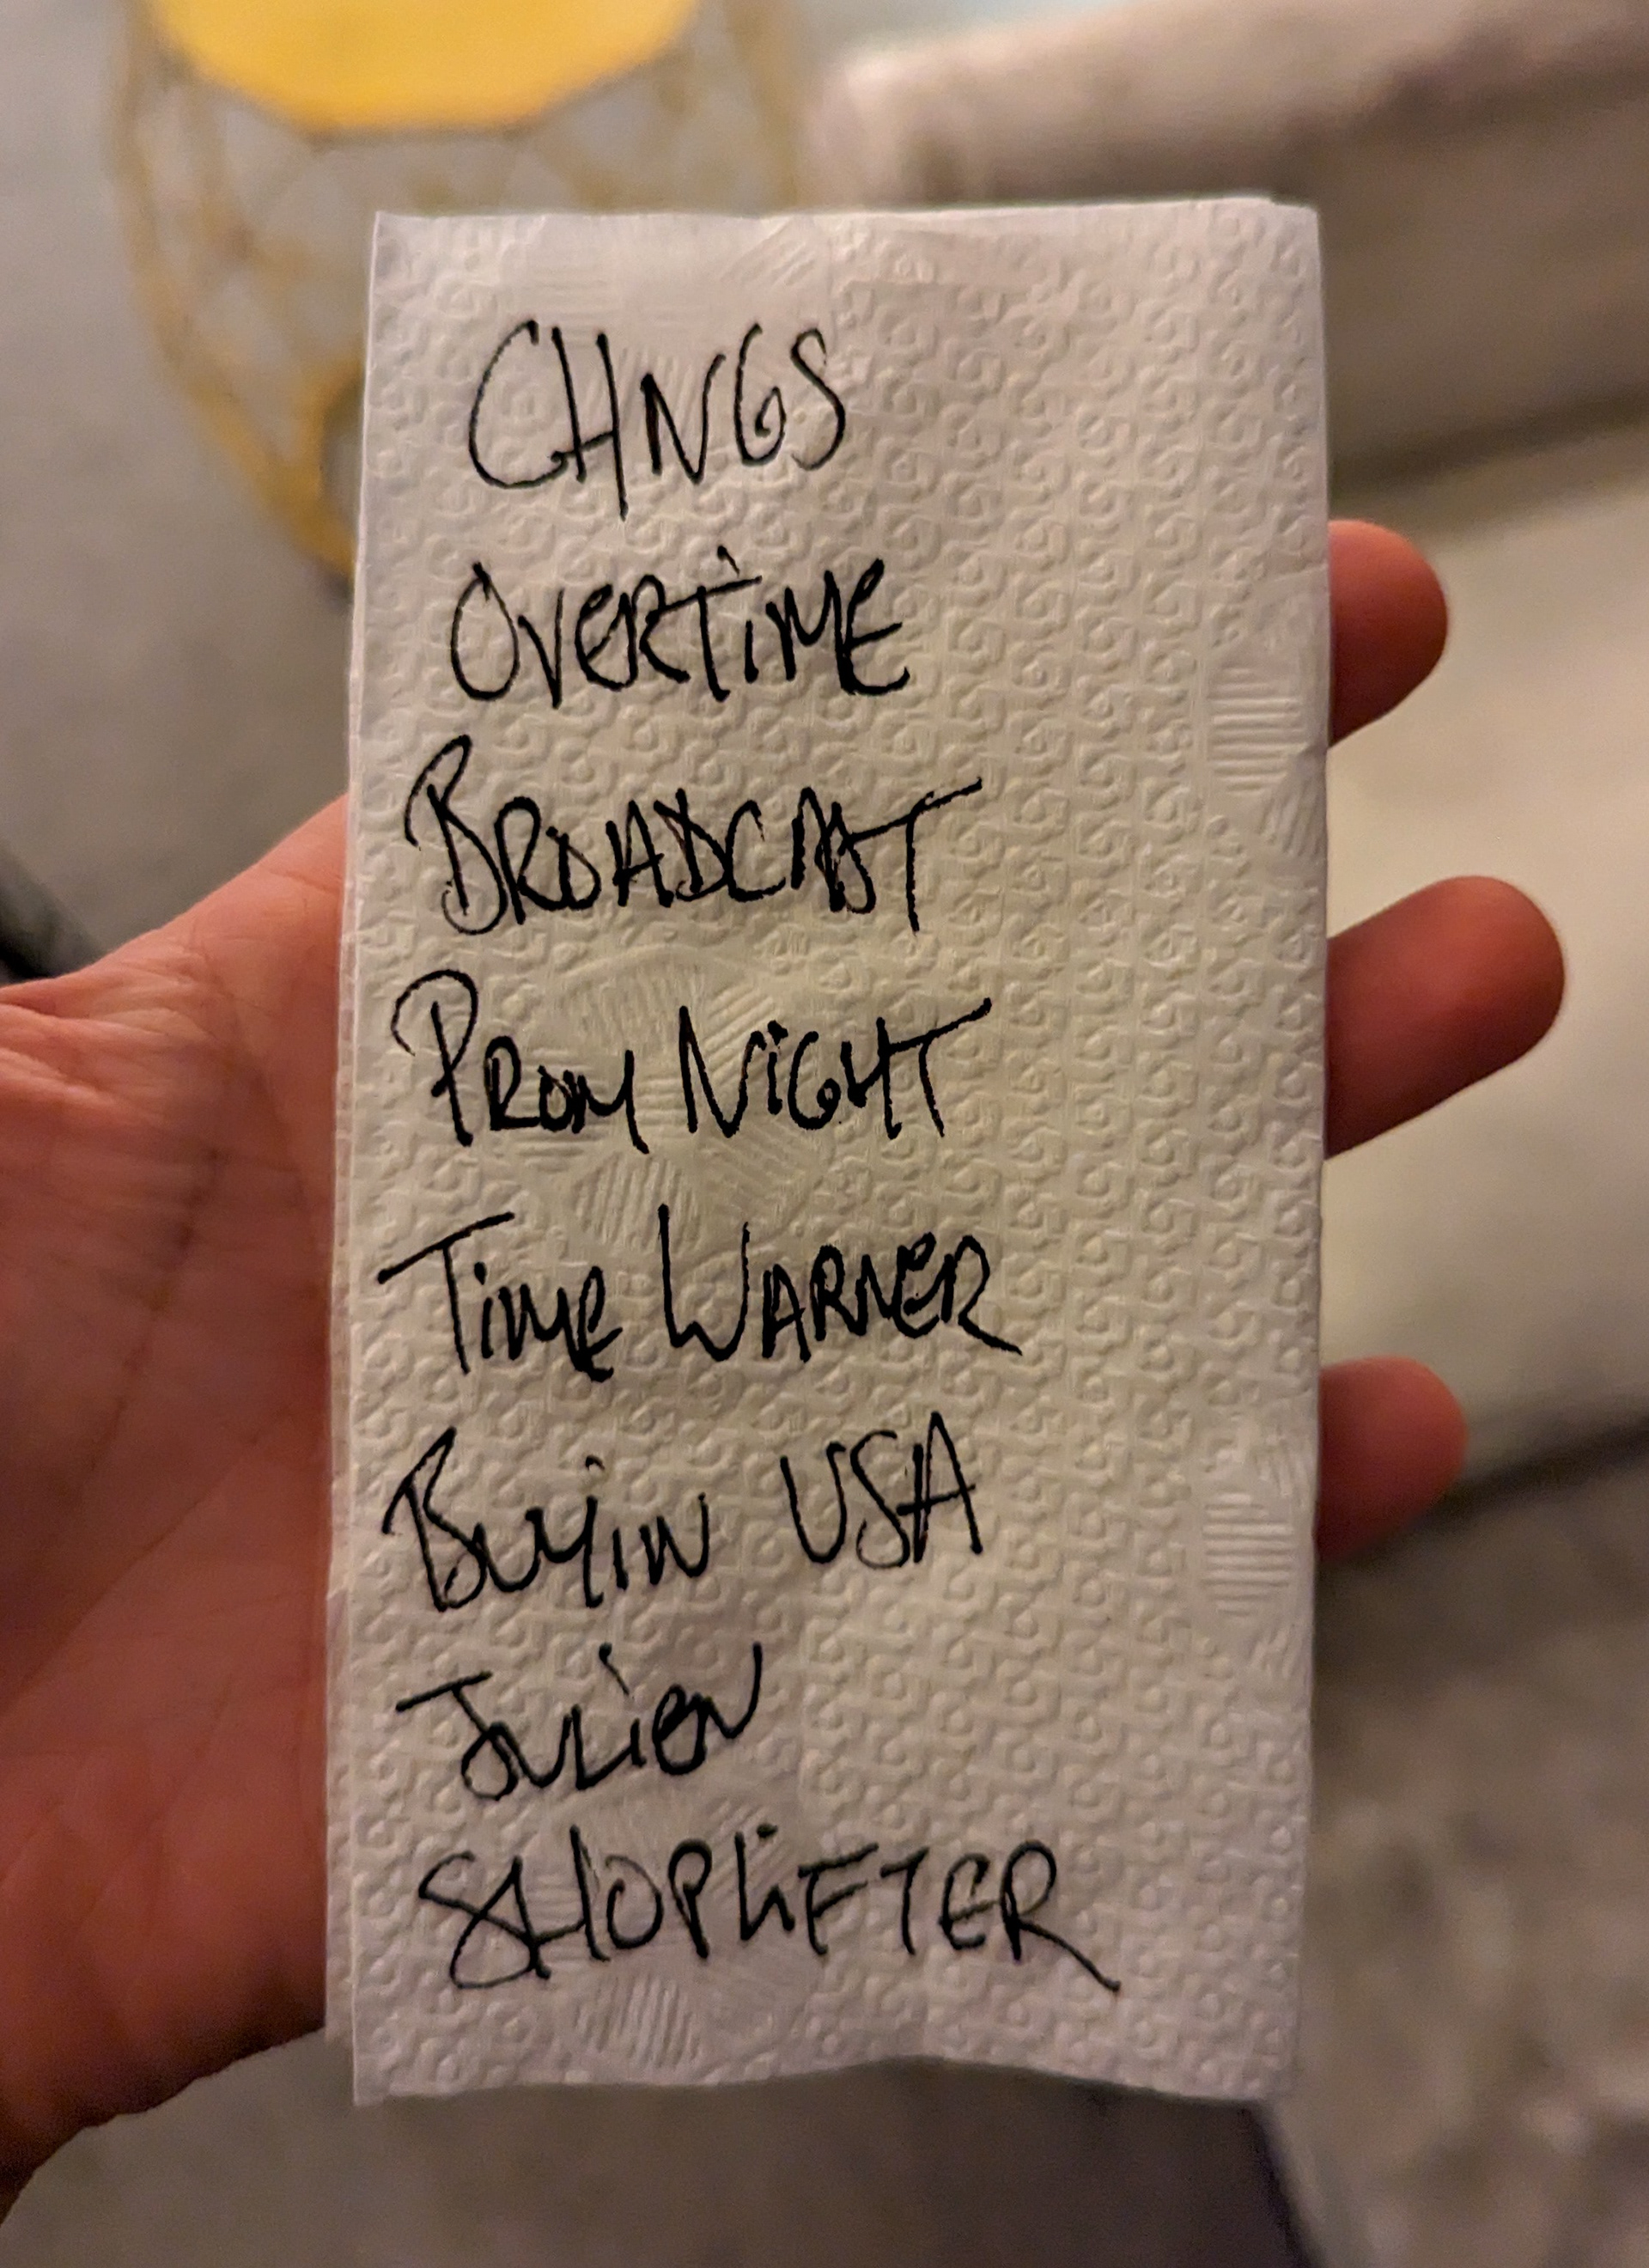 CHNGS
OVERTIME
BROADCAST
PROM NIGHT
TIME WARNER
BUYIN USA
JULIEN
SHOPLIFTER